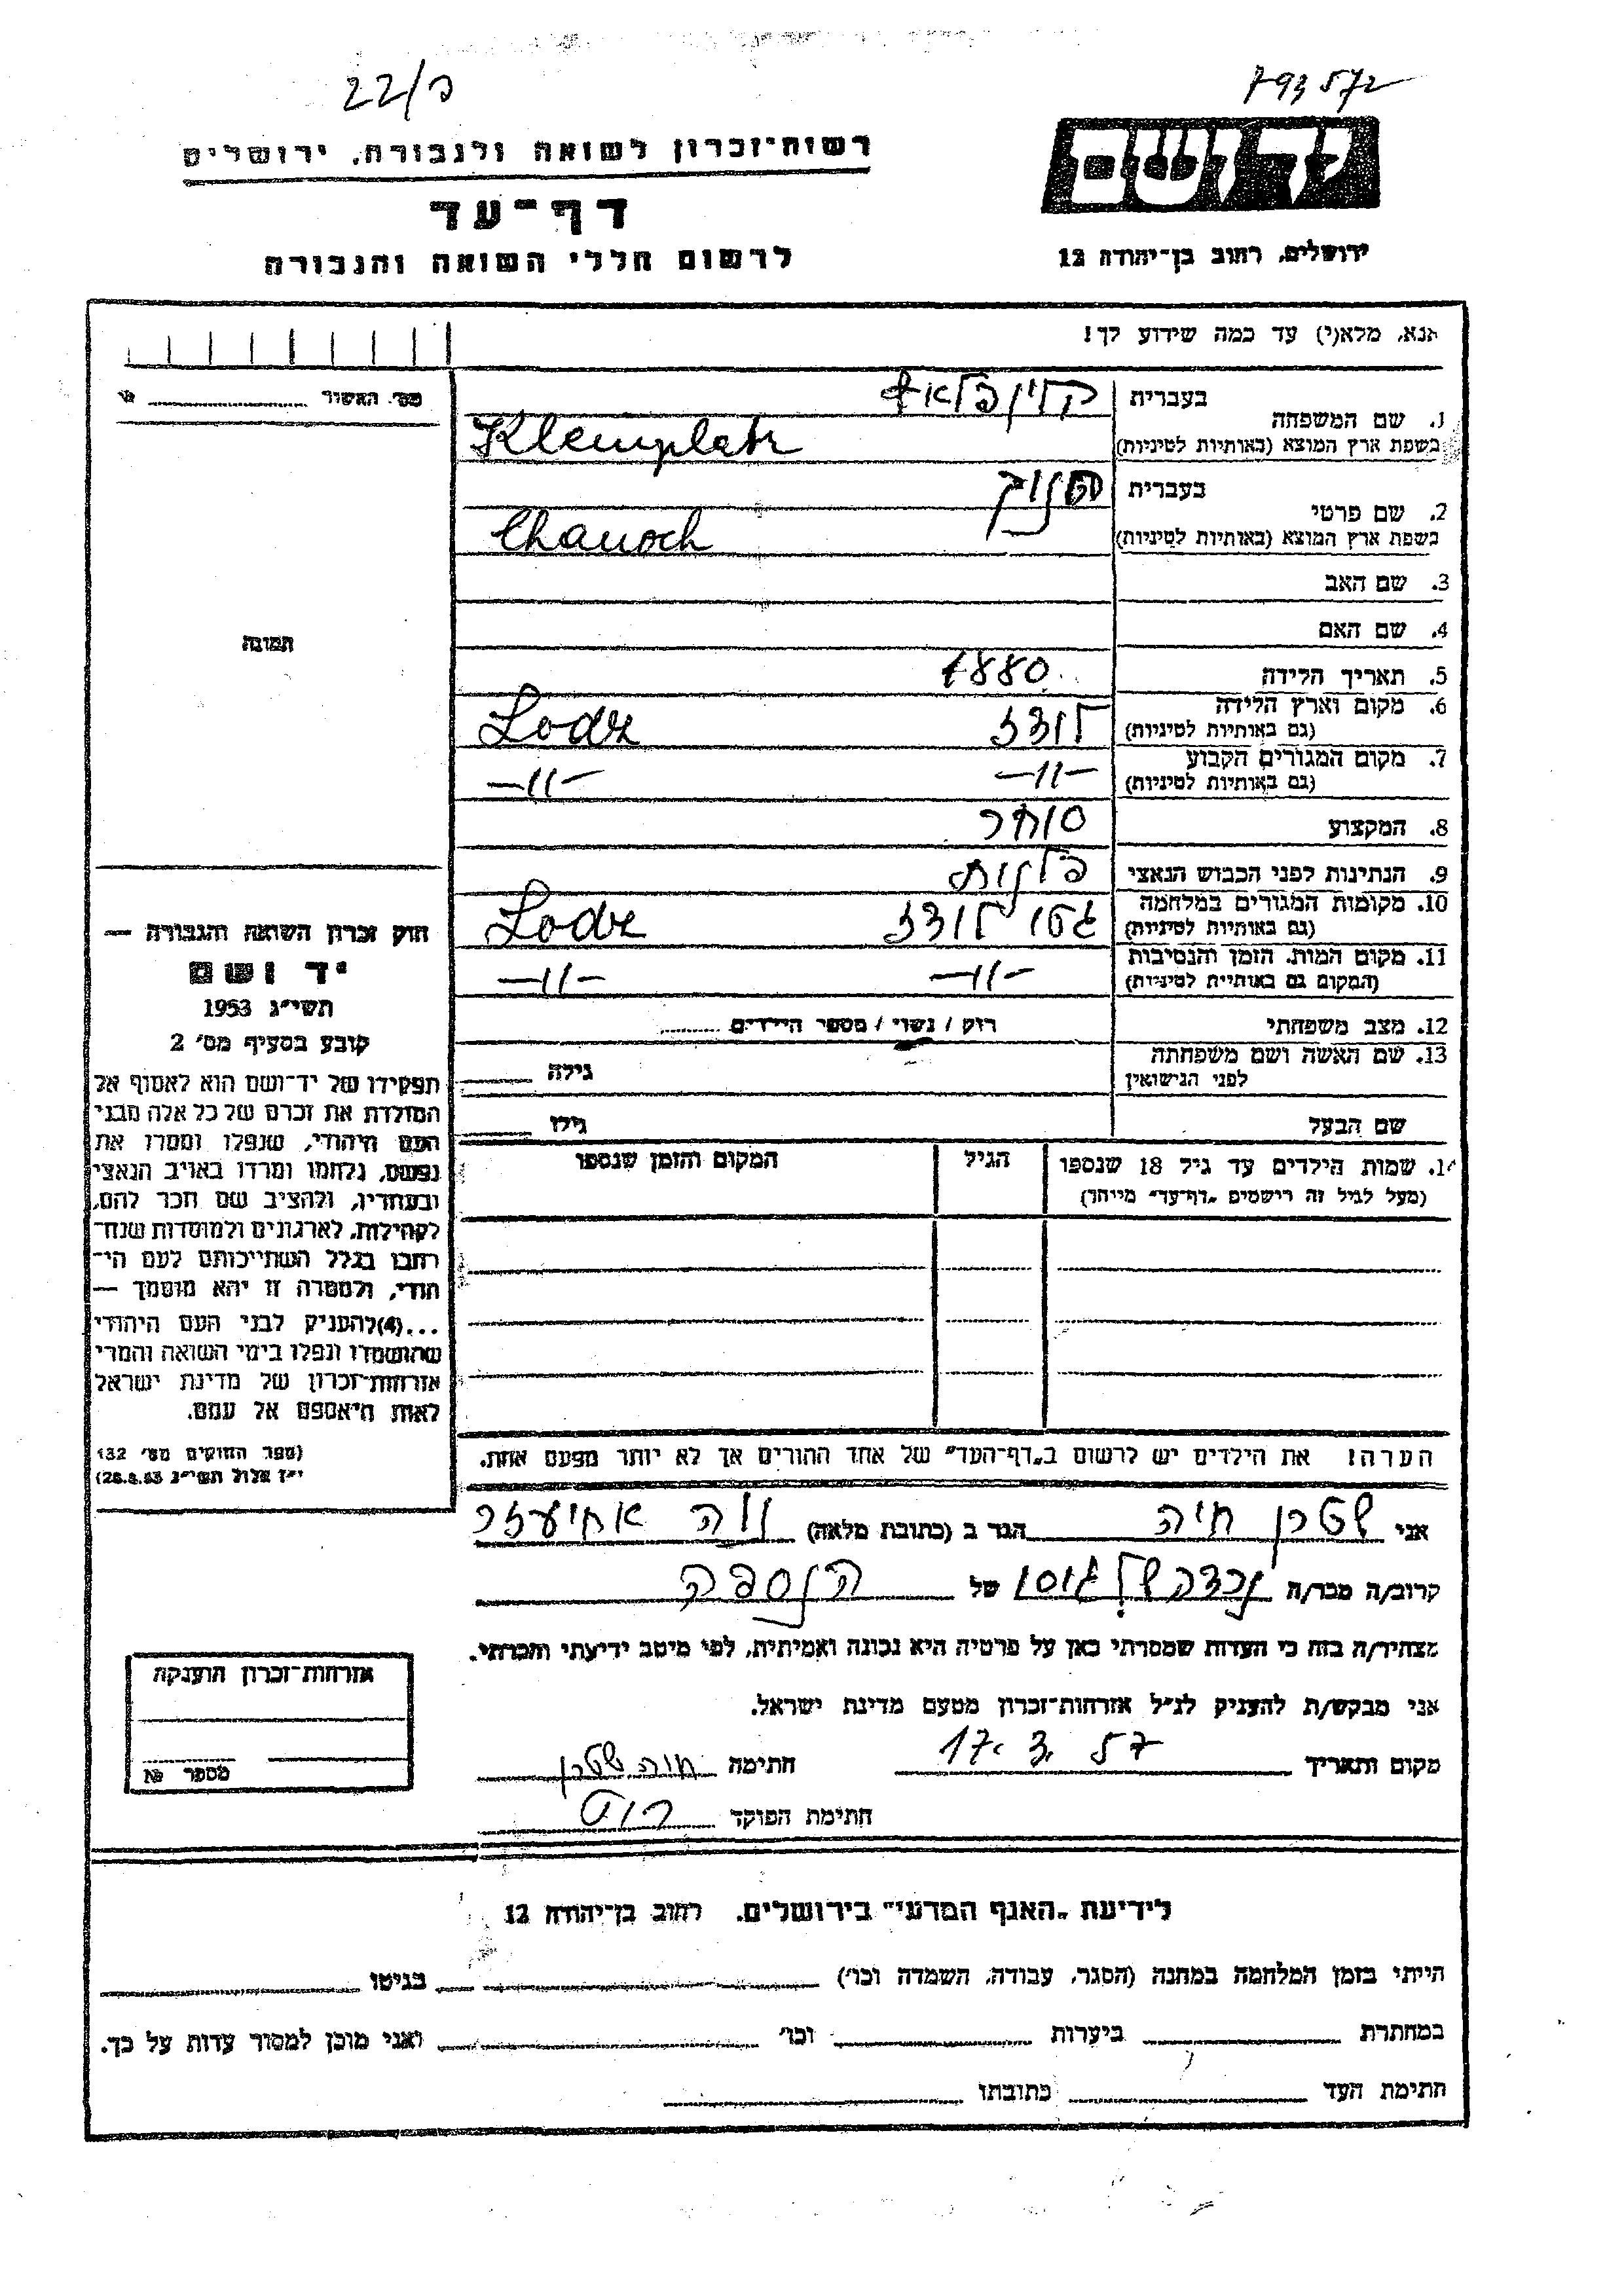 22/פ
793572
רשות־זכרון לשואה ולגבורה, ירושלים
יד ושם
דף־עד
לרשום חללי השואה והגבורה
ירושלים, רחוב בן־יהודה 12
אנא, מלא(י) עד כמה שידוע לך!
מס׳ האשור
1. שם המשפחה
בעברית
בשפת ארץ המוצא (באותיות לטיניות)
Klemplatz
2. שם פרטי
בעברית
חנוך
בשפת ארץ המוצא (באותיות לטיניות)
Chanoch
3. שם האב
4. שם האם
תמונה
5. תאריך הלידה 1880
6. מקום וארץ הלידה
(גם באותיות לטיניות)
לודז Lodz
7. מקום המגורים הקבוע
(גם באותיות לטיניות)
—11— —11—
8. המקצוע סוחר
9. הנתינות לפני הכבוש הנאצי פלנית
10. מקומות המגורים במלחמה
(גם באותיות לטיניות)
גטו לודז Lodz
11. מקום המות, הזמן והנסיבות
(המקום גם באותיות לטיניות)
—11— —11—
12. מצב משפחתי רוק / נשוי / מספר הילדים
13. שם האשה ושם משפחתה
לפני הנישואין
גילה
שם הבעל גילו
14. שמות הילדים עד גיל 18 שנספו
(מעל לגיל זה רישמים „דף־עד” מייחד)
הגיל
המקום והזמן שנספו
חוק זכרון השואה והגבורה —
יד ושם
תשי״ג 1953
קובע בסעיף מס׳ 2
תפקידו של יד־ושם הוא לאסוף אל
המולדת את זכרם של כל אלה מבני
העם היהודי, שנפלו ומסרו את
נפשם, נלחמו ומרדו באויב הנאצי
ובעוזריו, ולהציב שם וזכר להם,
לקהילות, לארגונים ולמוסדות שנח־
רבו בגלל השתייכותם לעם הי־
הודי, ולמטרה זו יהא מוסמך —
...(4)להעניק לבני העם היהודי
שהושמדו ונפלו בימי השואה והמרי
אזרחות־זכרון של מדינת ישראל
לאות היאספם אל עמם.
(ספר החוקים מס׳ 132
י״ז אלול תשי״ג 28.8.53)
הערה! את הילדים יש לרשום ב„דף־העד” של אחד ההורים אך לא יותר מפעם אחת.
אני שטרן חיה הגר ב (כתובת מלאה) נוה אחיעזר
קרוב/ה מכר/ה נכדה של גיסו של הנספה
מצהיר/ה בזה כי העדות שמסרתי כאן על פרטיה היא נכונה ואמיתית, לפי מיטב ידיעתי והכרתי.
אני מבקש/ת להעניק לנ״ל אזרחות־זכרון מטעם מדינת ישראל.
מקום ותאריך 17. 3. 57 חתימה חיה שטרן
חתימת הפוקד
אזרחות־זכרון הוענקה
מספר №
לידיעת „האגף המדעי” בירושלים, רחוב בן־יהודה 12
הייתי בזמן המלחמה במחנה (הסגר, עבודה, השמדה וכו׳) בגיטו
במחתרת ביערות וכו׳ ואני מוכן למסור עדות על כך.
חתימת העד כתובתו